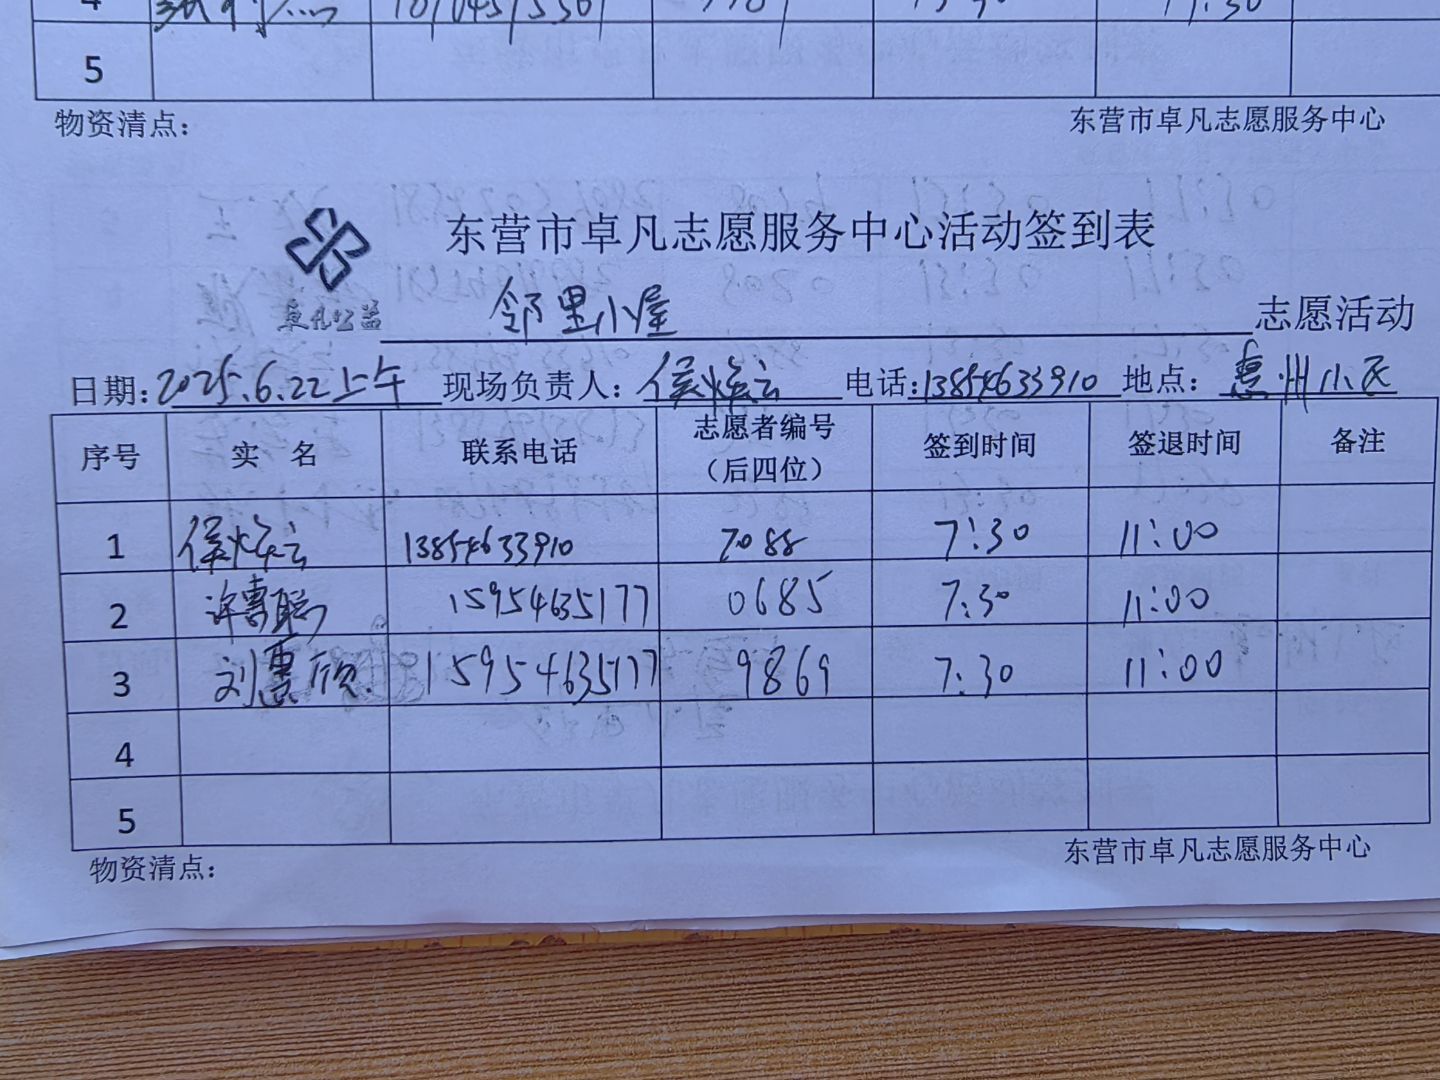 4 13:30 17:30
5
物资清点： 东营市卓凡志愿服务中心
东营市卓凡志愿服务中心活动签到表
卓凡公益
邻里小屋 志愿活动
日期：2025.6.22上午 现场负责人：侯焕云 电话：13854633910 地点：惠州小区
序号 实 名 联系电话 志愿者编号（后四位） 签到时间 签退时间 备注
1 侯焕云 13854633910 7088 7:30 11:00
2 许惠聪 15954635177 0685 7:30 11:00
3 刘惠欣 15954635177 9869 7:30 11:00
4
5
物资清点： 东营市卓凡志愿服务中心